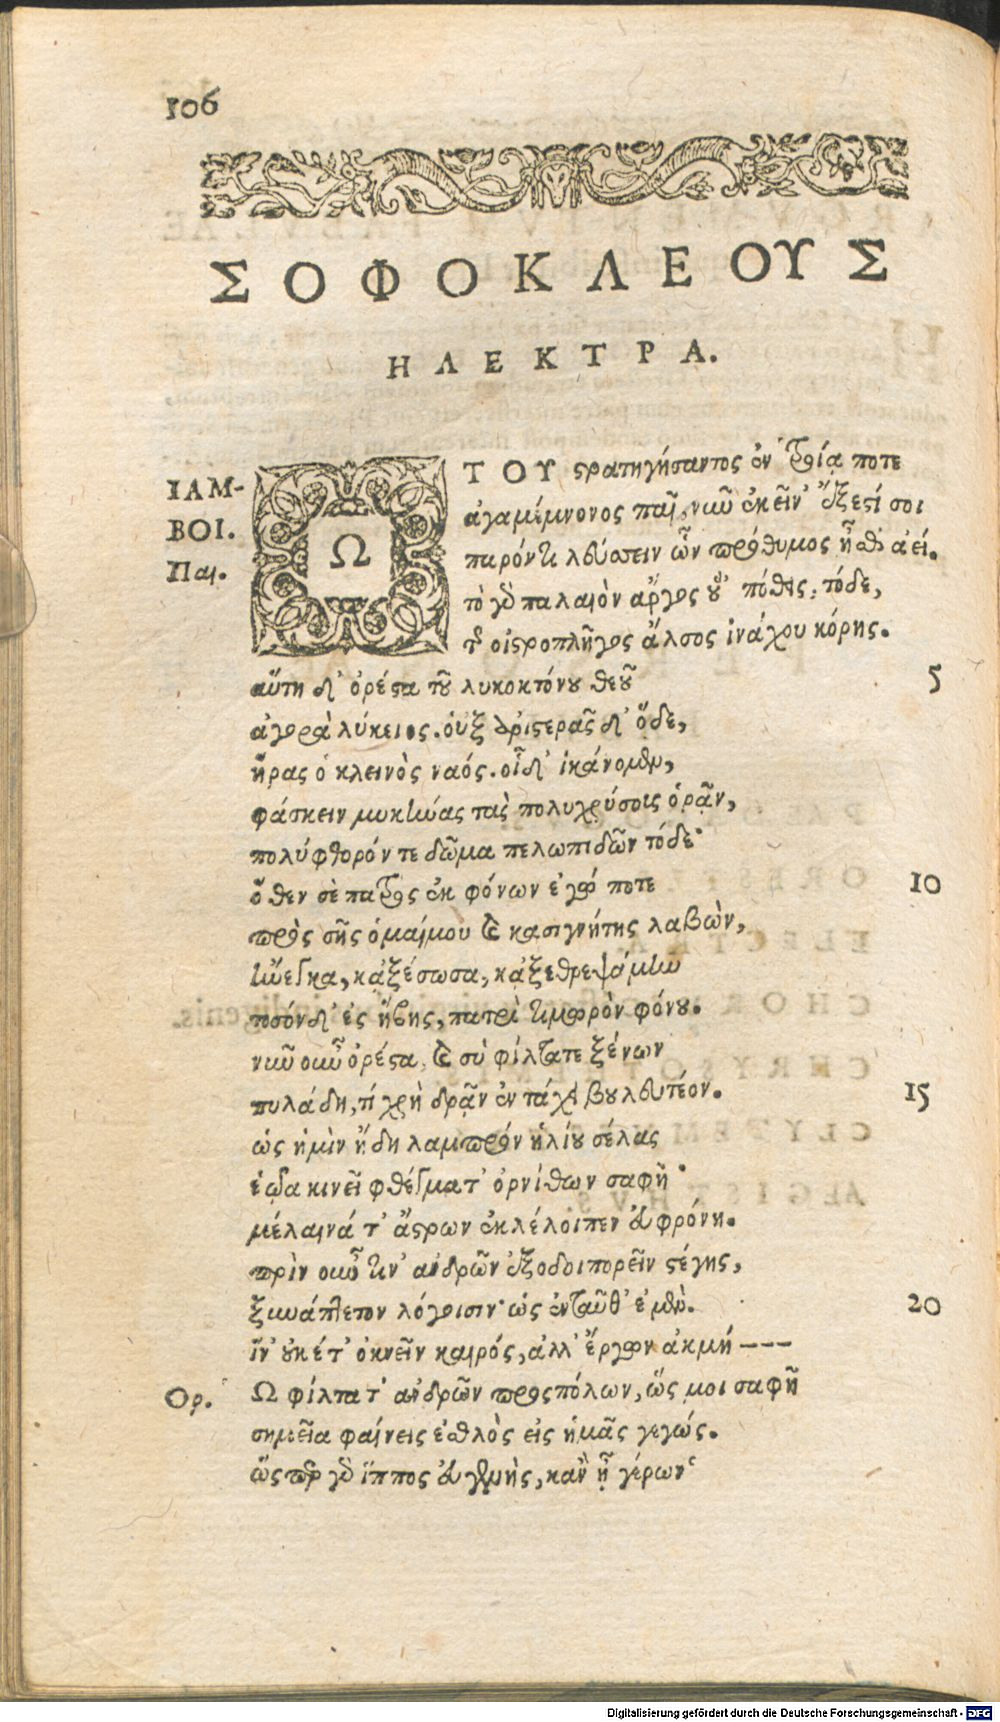 106
ΣΟΦΟΚΛΕΟΥΣ
ΗΛΕΚΤΡΑ.
ΙΑΜ-
ΒΟΙ.
Παι.
Ω ΤΟΥ στρατηγήσαντος ἐν τροίᾳ ποτε
ἀγαμέμνονος παῖ, νῦν ἐκεῖν' ἔξεστί σοι
παρόντι λεύσσειν ὧν πρόθυμος ἦσθ' ἀεί.
τὸ γὰρ παλαιὸν ἄργος οὑπόθεις, τόδε,
τῆς οἰστροπλῆγος ἄλσος ἰνάχου κόρης.
αὕτη δ' ὀρέστα τοῦ λυκοκτόνου θεοῦ 5
ἀγορὰ λύκειος. οὑξ ἀριστερᾶς δ' ὅδε,
ἥρας ὁ κλεινὸς ναός. οἷ δ' ἱκάνομεν,
φάσκειν μυκήνας τὰς πολυχρύσοις ὁρᾷν,
πολύφθορόν τε δῶμα πελωπιδῶν τόδε·
ὅθεν σὲ πατρὸς ἐκ φόνων ἐγώ ποτε 10
πρὸς σῆς ὁμαίμου καὶ κασιγνήτης λαβὼν,
ἤνεγκα, κᾀξέσωσα, κᾀξεθρεψάμην
τοσόνδ' ἐς ἥβης, πατρὶ τιμωρὸν φόνου.
νῦν οὖν ὀρέστα, καὶ σὺ φίλτατε ξένων
πυλάδη, τί χρὴ δρᾷν ἐν τάχει βουλευτέον. 15
ὡς ἡμὶν ἤδη λαμπρὸν ἡλίου σέλας
ἑῷα κινεῖ φθέγματ' ὀρνίθων σαφῆ·
μέλαινά τ' ἄστρων ἐκλέλοιπεν εὐφρόνη.
πρὶν οὖν τιν' ἀνδρῶν ἐξοδοιπορεῖν στέγης,
ξυνάπτετον λόγοισιν· ὡς ἐνταῦθ' ἐμὲν. 20
ἵν' οὐκέτ' ὀκνεῖν καιρός, ἀλλ' ἔργων ἀκμή ---
Ορ. Ω φίλτατ' ἀνδρῶν προσπόλων, ὥς μοι σαφῆ
σημεῖα φαίνεις ἐσθλὸς εἰς ἡμᾶς γεγώς.
ὥσπερ γὰρ ἵππος εὐγενὴς, κἂν ᾖ γέρων
Digitalisierung gefördert durch die Deutsche Forschungsgemeinschaft - DFG